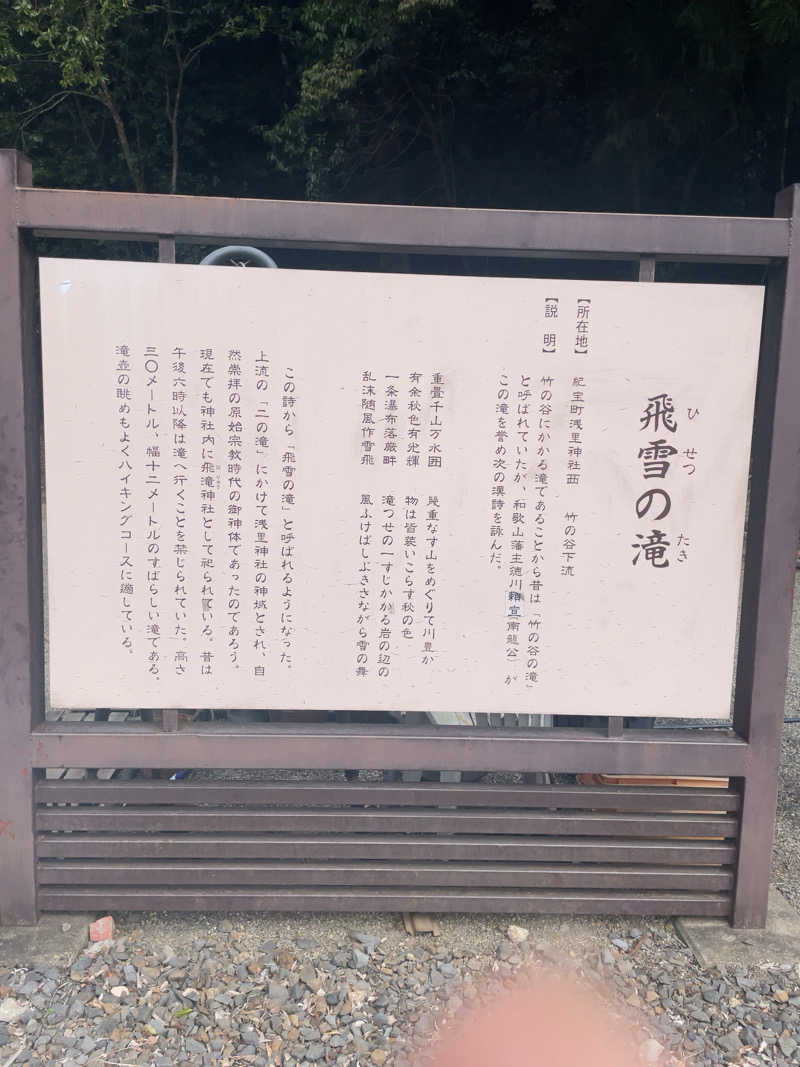 飛雪の滝
ひせつ たき
【所在地】 紀宝町浅里神社西 竹の谷下流
【説 明】 竹の谷にかかる滝であることから昔は「竹の谷の滝」
と呼ばれていたが、和歌山藩主徳川頼宣（南龍公）が
この滝を誉め次の漢詩を詠んだ。
重畳千山万水囲 幾重なす山をめぐりて川豊か
有余秋色有光輝 物は皆装いこらす秋の色
一条瀑布落巌畔 滝つせの一すじかかる岩の辺の
乱沫随風作雪飛 風ふけばしぶきさながら雪の舞
この詩から「飛雪の滝」と呼ばれるようになった。
上流の「二の滝」にかけて浅里神社の神域とされ、自
然崇拝の原始宗教時代の御神体であったのであろう。
現在でも神社内に飛滝神社として祀られている。昔は
午後六時以降は滝へ行くことを禁じられていた。高さ
三〇メートル、幅十二メートルのすばらしい滝である。
滝壺の眺めもよくハイキングコースに適している。